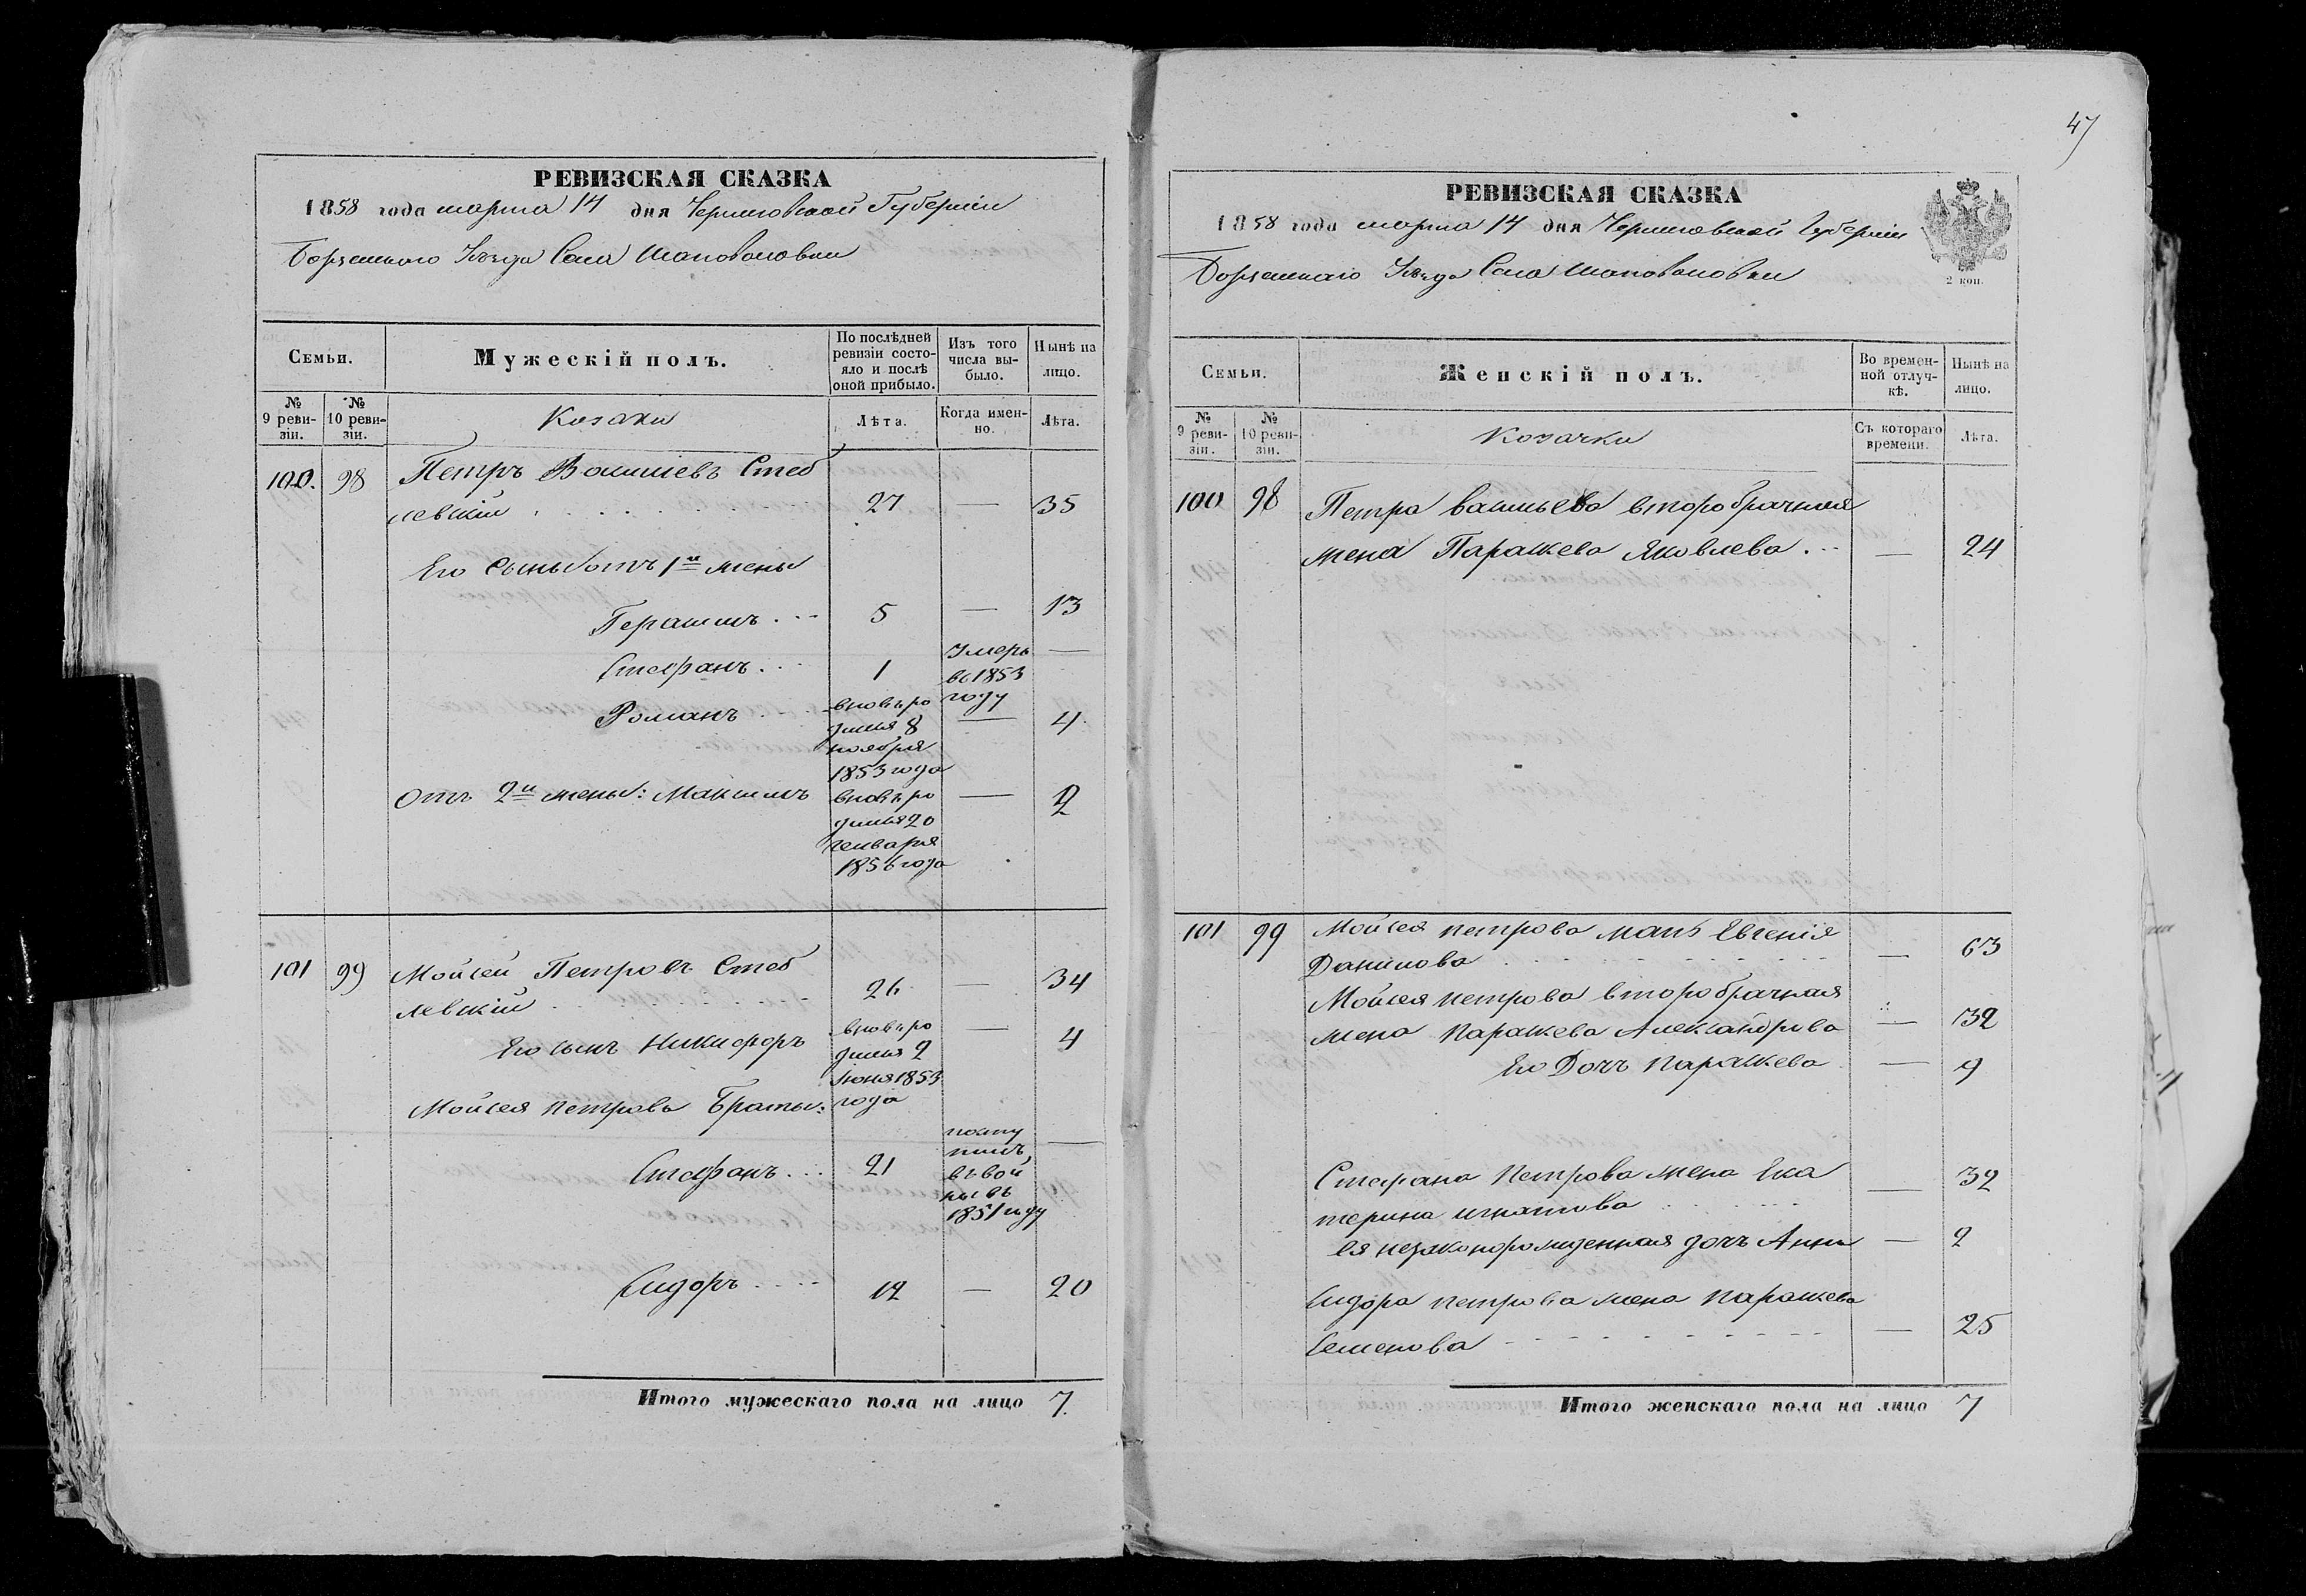 47
РЕВИЗСКАЯ СКАЗКА
1858 года марта 14 дня Черниговской Губерніи
Борзенского Уѣзда Села Шаповаловки
Семьи.
Мужескій полъ.
По послѣдней ревизіи состо-
яло и послѣ оной прибыло.
Изъ того числа вы-
было.
Нынѣ на лицо.
№ 9 реви-
зіи.
№ 10 реви-
зіи.
Козаки
Лѣта.
Когда имен-
но.
Лѣта.
100. 98 Петръ Васильевъ Стеб
левскій 27 — 35
Его Сыны отъ 1й жены
Герасимъ 5 — 13
Стефанъ 1 Умеръ —
въ 1853
году
Романъ вновь ро — 4
дился 8
ноября
1853 года
Отъ 2й жены: Максимъ вновь ро — 2
дился 20
генваря
1856 года
101 99 Мойсей Петровъ Стеб
левскій 26 — 34
Его сынъ Никифоръ вновь ро — 4
дился 2
Июня 1853
года
Мойсея Петрова Браты:
Стефанъ 21 посту —
пилъ
въ вой
ны въ
1851 году
Сидоръ 12 — 20
Итого мужескаго пола на лицо 7.
РЕВИЗСКАЯ СКАЗКА
1858 года марта 14 дня Черниговской Губерніи
Борзенскаго Уѣзда Села Шаповаловки
2 коп.
Семьи.
Женскій полъ.
Во времен-
ной отлуч-
кѣ.
Нынѣ на лицо.
№ 9 реви-
зіи.
№ 10 реви-
зіи.
Козачки
Съ котораго времени.
Лѣта.
100 98 Петра васильева второбрачная
жена Параскева Яковлева — 24
101 99 Мойсея петрова мать Евгенія
Данилова — 63
Мойсея петрова второбрачная
жена Параскева Александрова — 32
Его Дочь Параскева — 9
Стефана Петрова жена Ека
терина игнатова — 32
ея незаконорожденная дочь Анна — 2
Сидора петрова жена Параскева
Семенова — 25
Итого женскаго пола на лицо 7